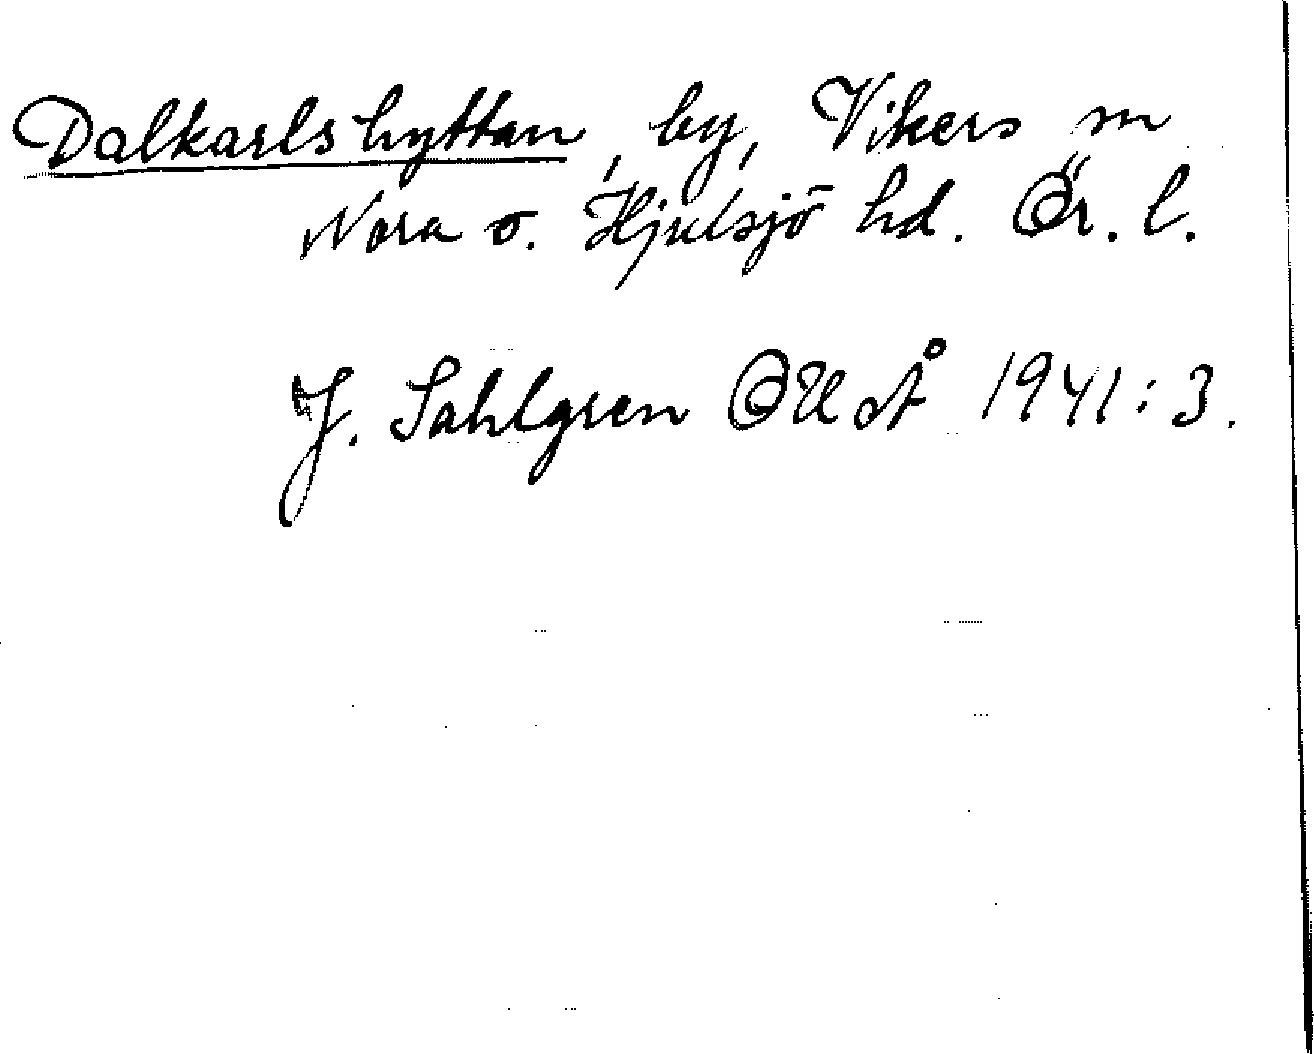 Dalkarlshyttan, by, Vikers sn
Nora o. Hjulsjö hd. Ör. l.
J. Sahlgren OUÅ 1941:3.